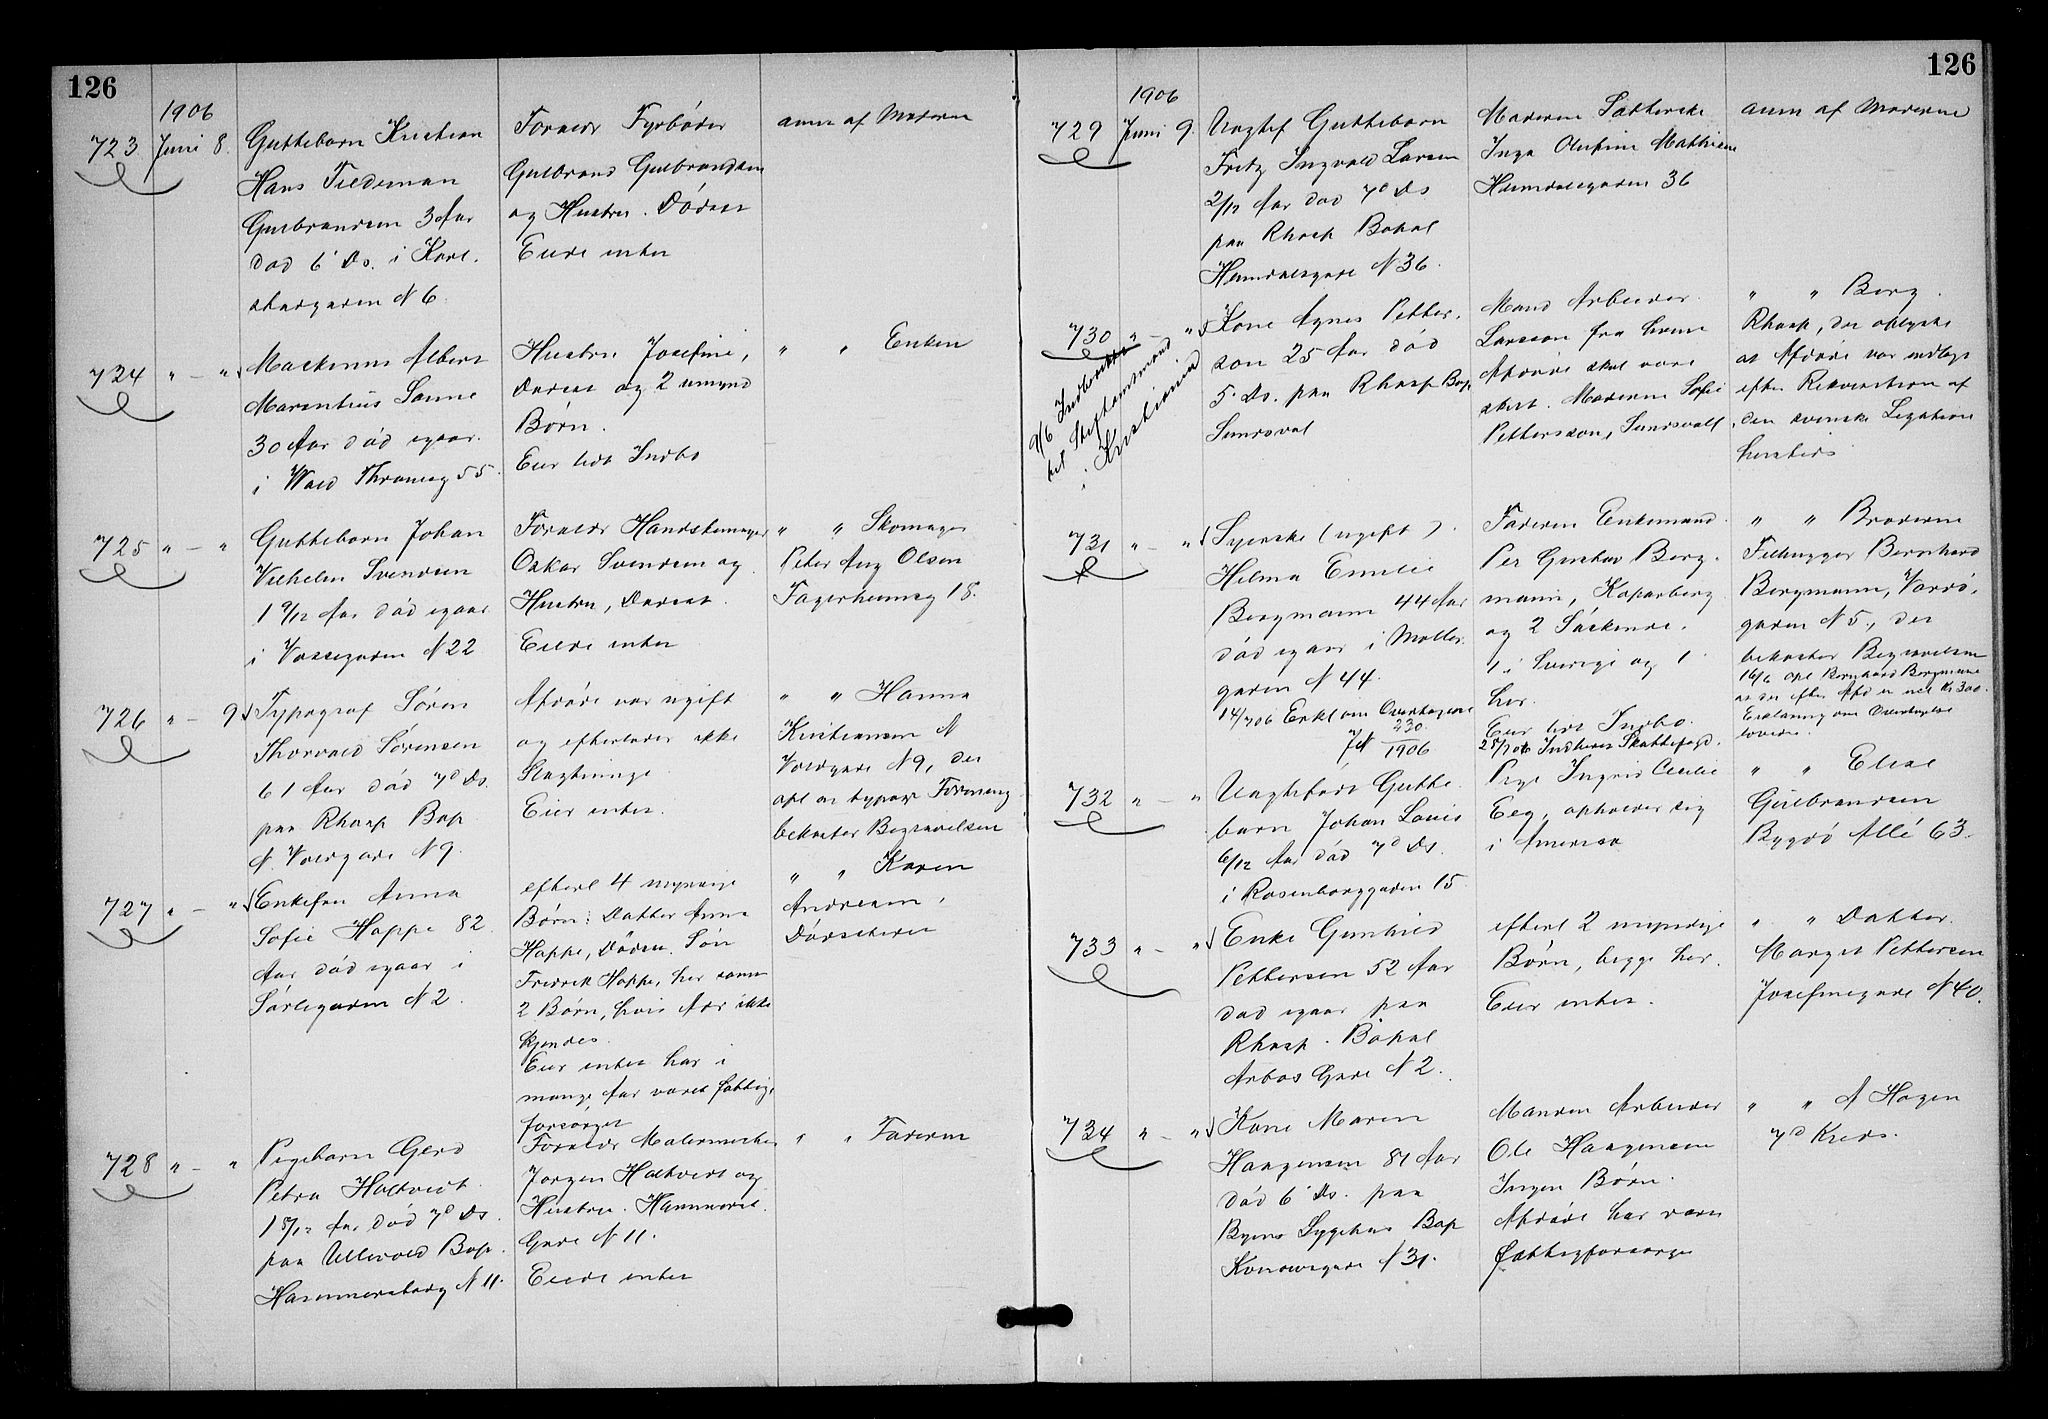 126
1906
723 Juni 8. Guttebarn Kristian
Hans Tiedeman
Gulbrandsen 3 Aar
død 6' Ds. i Karl-
stadgaden N 6
Foræld: Fyrbøder
Gulbrand Gulbrandsen
og Hustru. Dødsat
Eiede intet
anm af Moderen
724 " — " Maskinm Albert
Marentius Sanne
30 Aar død igaar
i Wald Thranesg 55
Hustru Josefine,
Dødsat og 2 umynd
Børn.
Eier lidt Indbo
" " Enken
725 " — " Guttebarn Johan
Vilhelm Svendsen
1 9/12 Aar død igaar
i Vossegaden N 22
Foræld: Handskemager
Oskar Svendsen og
Hustru, Dødsat.
Eiede intet
" " Skomager
Peter Aug Olsen
Fagerheimsg 18.
726 " — 9 Typograf Søren
Thorvald Sørensen
61 Aar død 7d Ds.
paa Rhosp Bop
N. Voldgade N 9.
Afdøde var ugift
og efterlader ikke
Slægtninge.
Eier intet.
" " Hanna
Kristiansen N
Voldgade N 9, der
opl at typogr Forening
bekoster Begravelsen
727 " — " Enkefru Anna
Sofie Hoppe 82
Aar død igaar i
Sørligaden N 2.
efterl 4 myndige
Børn: Datter Anna
Hoppe, Døden. Søn
Fredrik Hoppe, her samt
2 Børn, hvis Adr ikke
kjendes.
Eier intet har i
mange Aar været fattig-
forsørget
" " Karen
Andresen,
728 " — " Pigebarn Gerd
Petra Holtvedt
1 5/12 Aar død 7d Ds.
paa Ullevold Bop.
Hammersborg N 11.
Foræld: Malermester
Jørgen Holtvedt og
Hustru. Hammersb.
Gade N 11.
Eiede intet
" " Faderen
126
1906
729 Juni 9. Uægtef Guttebarn
Fritz Ingvald Larsen
2/12 Aar død 7d Ds
paa Rhosp Bopæl
Heimdalsgade N 36.
Moderen Sætterske
Inga Olufine Mathisen
Heimdalsgaden 36
anm af Moderne
730 " — " Kone Agnes Petter-
son 25 Aar død
5. Ds. paa Rhosp Bop
Sundsval
Mand Arbeider
Larsson fra hvem
Afdøde skal være
skilt. Moderen Sofie
Pettersson, Sundsvall
" " Borg
Rhosp, der oplyste
at Afdøde var indlagt
efter Rekvisition af
den svenske Legation
hersteds
9/6 Indberettet
til Stiftamtmand
i Kristiania
731 " — " Syerske (ugift)
Hilma Emilie
Bergmann 44 Aar
død igaar i Møller-
gaden N 44.
14/7 06 Erkl om Overtagelse
Jfr 230/1906
Faderen Enkemand
Per Gustav Berg-
mann, Koparberg
og 2 Søskende.
1 i Sverige og 1
her.
Eier lidt Indbo.
Skattefogd.
" " Broderen
Filhugger Bernhard
Bergmann, Vardø-
gaden N 5, der
bekoster Begravelsen
16/6 opl Bernhard Bergmann
at der efter Afd er
Erklæring om Overtagelse
732 " — " Uægtefødt Gutte-
barn Johan Louis
6/12 Aar død 7d Ds.
i Rosenborggaden 15
Pige Ingrid Cecilie
Eeg, opholder sig
i Amerika
" " Elise
Gulbrandsen
Bygdø Allé 63.
733 " — " Enke Gunhild
Pettersen 52 Aar
død igaar paa
Rhosp. Bopæl
Arbos Gade N 2.
efterl 2 myndige
Børn, begge her.
Eier intet.
" " Datter
Margit Pettersen
Josefinegade N 40.
734 " — " Kone Maren
Haagensen 81 Aar
død 6' Ds. paa
Byens Sygehus Bop
Konowsgade N 31.
Manden Arbeider
Ole Haagensen
Ingen Børn.
Afdøde har været
Fattigforsørget
" " A Hagen
7d Kreds.